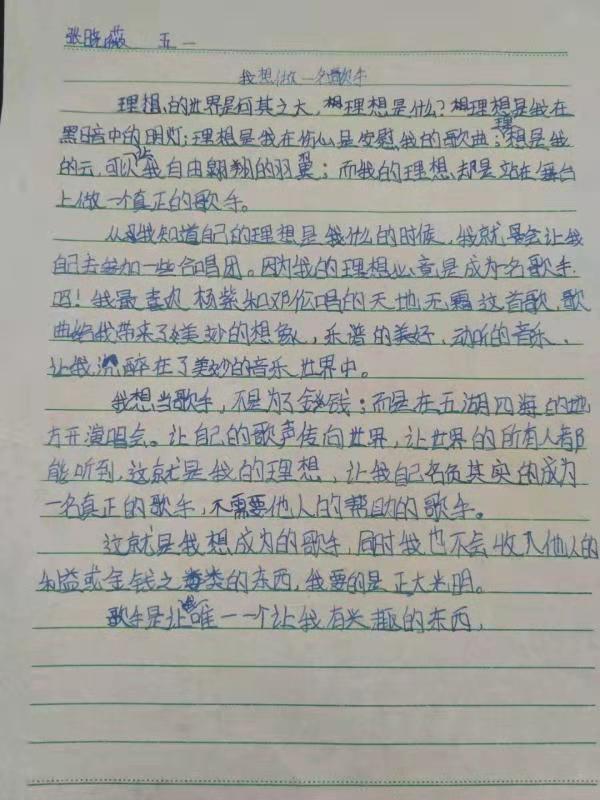 张晓薇 五一
我想做一名歌手
理想的世界是何其之大，理想是什么？理想是我在
黑暗中的明灯；理想是我在伤心是安慰我的歌曲；理想是我
的云，可以让我自由翱翔的羽翼；而我的理想却是站在舞台
上做一个真正的歌手。
从我知道自己的理想是我什么的时候，我就是会让我
自己去参加一些合唱团。因为我的理想必竟是成为一名歌手
吗！我最喜欢杨紫和邓伦唱的天地无霜这首歌，歌
曲给我带来了美妙的想象，乐谱的美好，动听的音乐，
让我沉醉在了美妙的音乐世界中。
我想当歌手，不是为了金钱；而是在五湖四海的地
方开演唱会。让自己的歌声传向世界，让世界的所有人都
能听到，这就是我的理想，让我自己名负其实的成为
一名真正的歌手，不需要他人的帮助的歌手。
这就是我想成为的歌手，同时我也不会收入他人的
利益或金钱之类的东西，我要的是正大光明。
歌手是唯一一个让我有兴趣的东西，